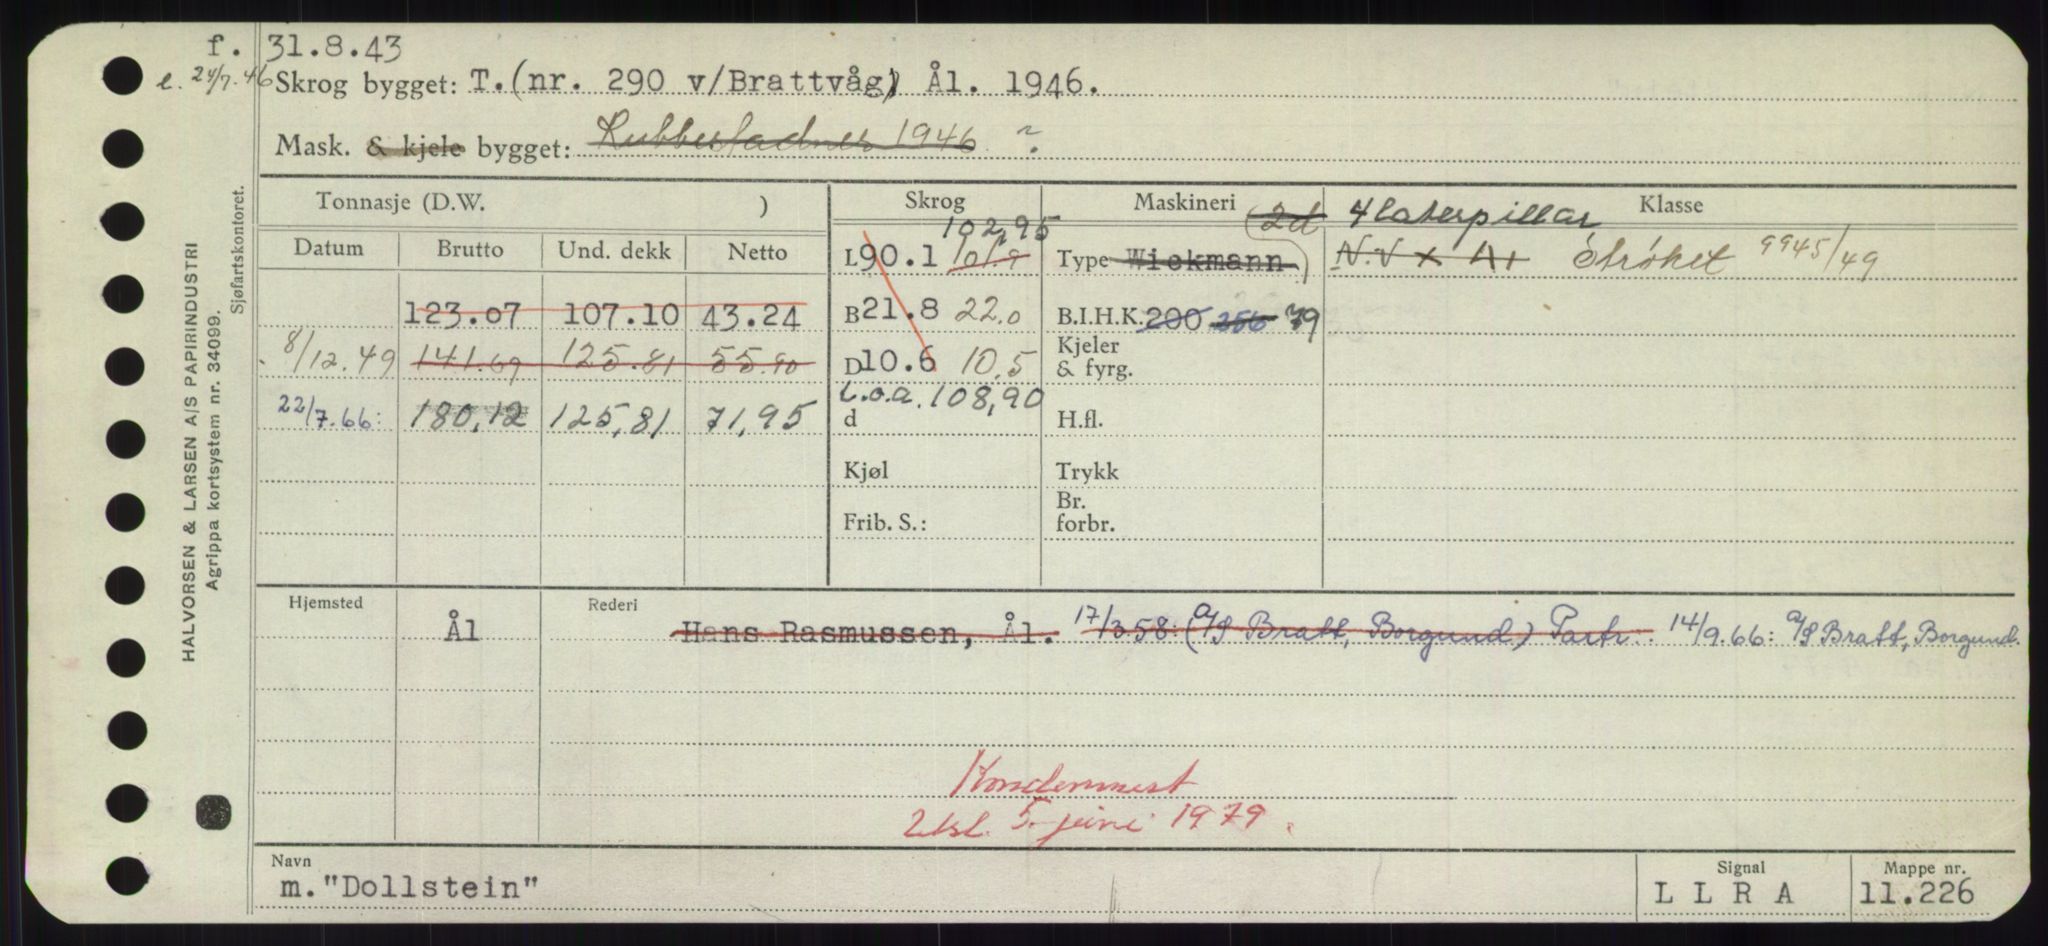 f. 31.8.43
e. 24/7.46 Skrog bygget: T.(nr. 290 v/Brattvåg) Ål. 1946.
Mask. & kjele bygget: Rubbestadnes 1946 ?
Tonnasje (D.W. ) Skrog Maskineri 2d 4 Caterpillar Klasse
102,95
Datum Brutto Und. dekk Netto L 90.1 101.9 Type Wickmann N.V x A1 Strøket 9945/49
123.07 107.10 43.24 B 21.8 22.0 B.I.H.K. 200 256 79
8/12.49 141.69 125.81 55.90 D 10.6 10.5 Kjeler & fyrg.
L.o.a. 108,90
22/7.66: 180,12 125,81 71,95 d H.fl.
Kjøl Trykk
Frib. S.: Br. forbr.
Hjemsted Rederi
Ål Hans Rasmussen, Ål. 17/3.58: (A/S Bratt, Borgund) Partr. 14/9.66: A/S Bratt, Borgund.
Kondemnert
5. juni 1979.
Navn Signal Mappe nr.
m. "Dollstein" L L R A 11.226
HALVORSEN & LARSEN A/S PAPIRINDUSTRI
Agrippa kortsystem nr. 34099.
Sjøfartskontoret.